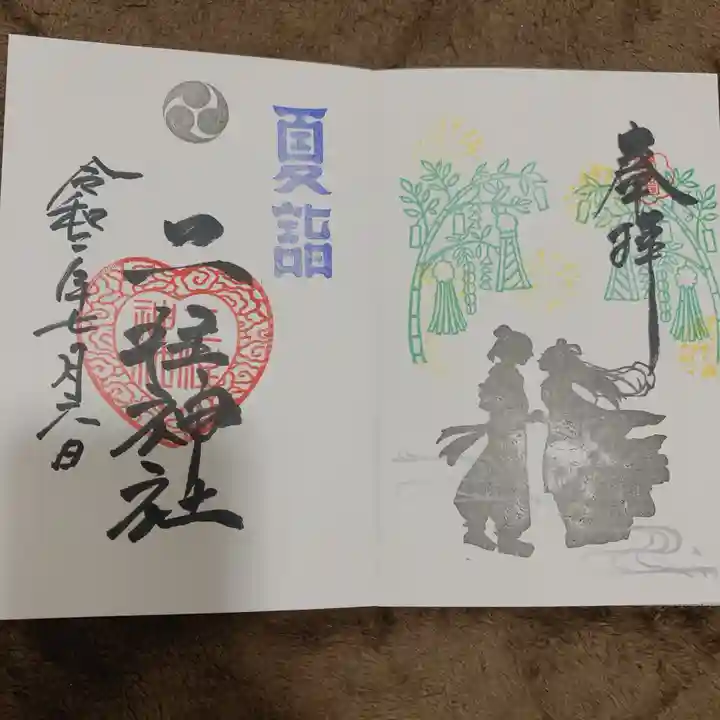 奉拝
夏詣
二柱神社
令和二年七月六日